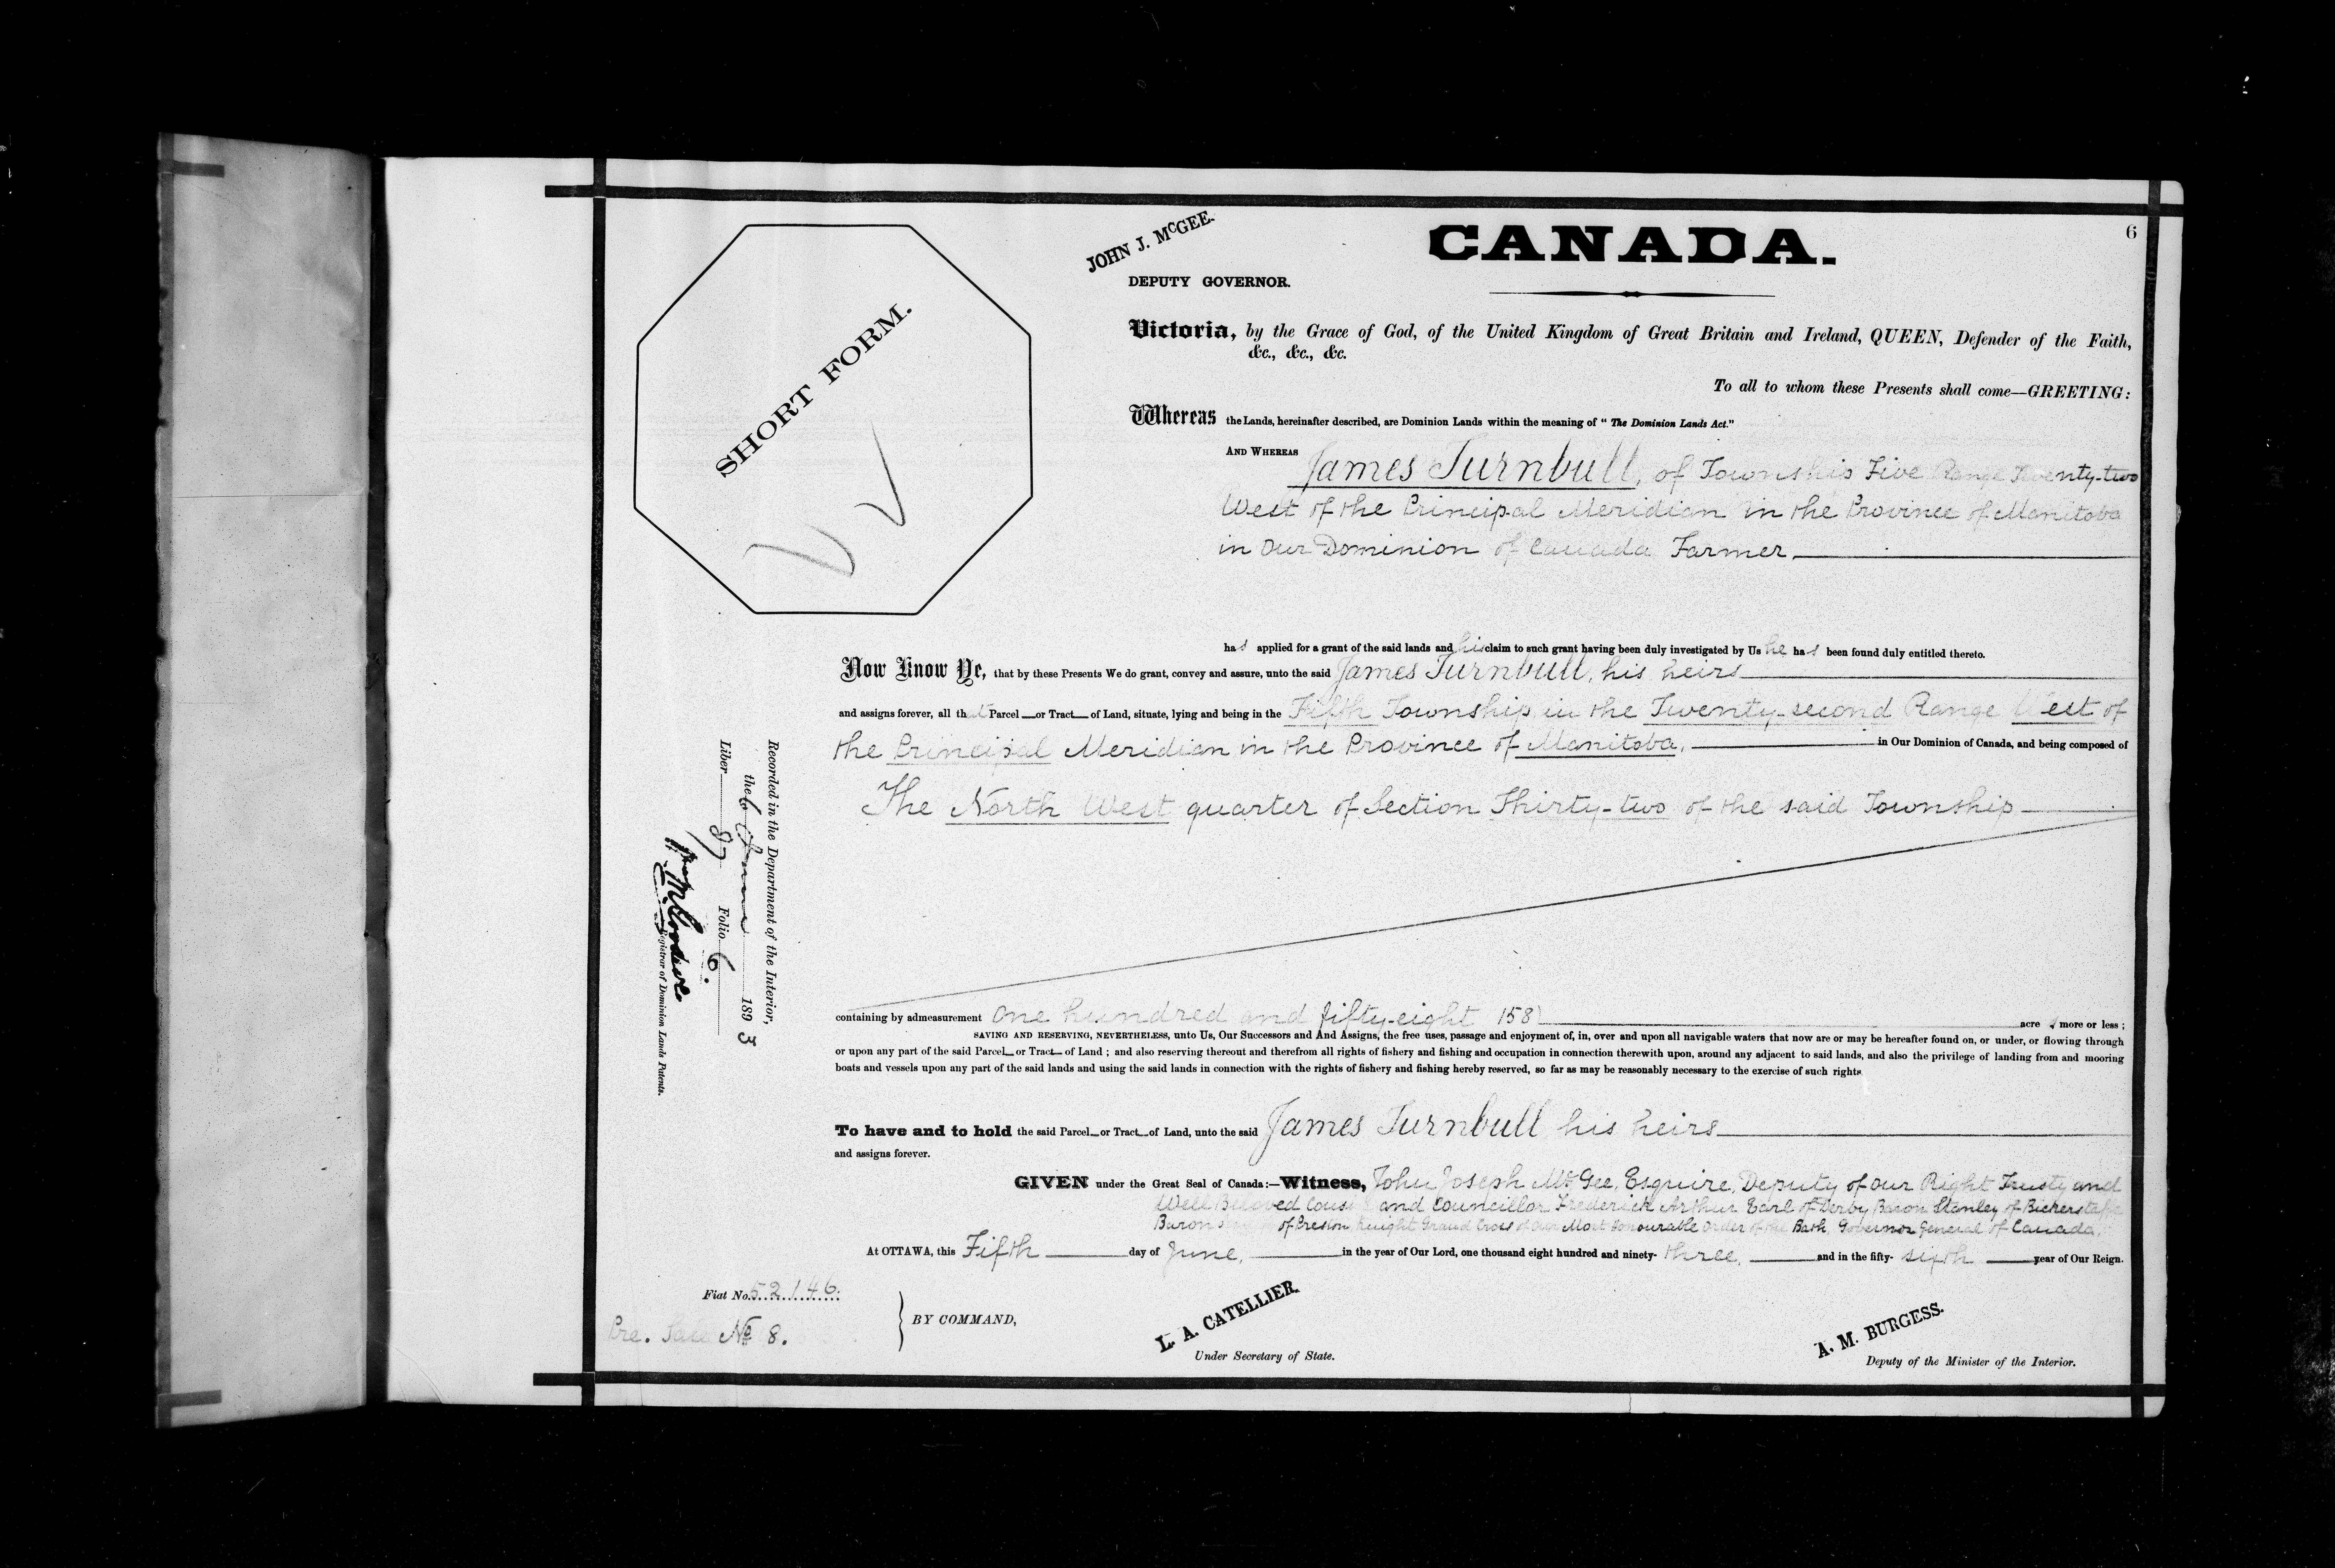 6
JOHN J. McGEE.
DEPUTY GOVERNOR.
CANADA.
SHORT FORM.
Victoria, by the Grace of God, of the United Kingdom of Great Britain and Ireland, QUEEN, Defender of the Faith,
&c., &c., &c.
To all to whom these Presents shall come—GREETING:
Whereas the Lands, hereinafter described, are Dominion Lands within the meaning of "The Dominion Lands Act."
AND WHEREAS James Turnbull, of Township Five Range Twenty-two
West of the Principal Meridian in the Province of Manitoba
in Our Dominion of Canada Farmer,
has applied for a grant of the said lands and his claim to such grant having been duly investigated by Us he has been found duly entitled thereto.
Now Know Ye, that by these Presents We do grant, convey and assure, unto the said James Turnbull, his heirs
and assigns forever, all that Parcel or Tract of Land, situate, lying and being in the Fifth Township in the Twenty-second Range West of
the Principal Meridian in the Province of Manitoba, in Our Dominion of Canada, and being composed of
The North West quarter of Section Thirty-two of the said Township
containing by admeasurement One hundred and fifty-eight 158) acres more or less;
SAVING AND RESERVING, NEVERTHELESS, unto Us, Our Successors and And Assigns, the free uses, passage and enjoyment of, in, over and upon all navigable waters that now are or may be hereafter found on, or under, or flowing through
or upon any part of the said Parcel or Tract of Land; and also reserving thereout and therefrom all rights of fishery and fishing and occupation in connection therewith upon, around any adjacent to said lands, and also the privilege of landing from and mooring
boats and vessels upon any part of the said lands and using the said lands in connection with the rights of fishery and fishing hereby reserved, so far as may be reasonably necessary to the exercise of such rights
To have and to hold the said Parcel or Tract of Land, unto the said James Turnbull his heirs
and assigns forever.
GIVEN under the Great Seal of Canada:—Witness, John Joseph McGee, Esquire, Deputy of Our Right Trusty and
Well Beloved Cousin and Councillor Frederick Arthur Earl of Derby Baron Stanley of Bickerstaffe
Baron of Preston Knight Grand Cross of Our Most Honourable Order of the Bath, Governor General of Canada.
At OTTAWA, this Fifth day of June, in the year of Our Lord, one thousand eight hundred and ninety-three, and in the fifty-sixth year of Our Reign.
Fiat No. 52146.
Pre. Sale No 8.
BY COMMAND,
L. A. CATELLIER.
Under Secretary of State.
A. M. BURGESS.
Deputy of the Minister of the Interior.
Recorded in the Department of the Interior,
the 6 June 1893
Liber 87 Folio 6.
Registrar of Dominion Lands Patents.